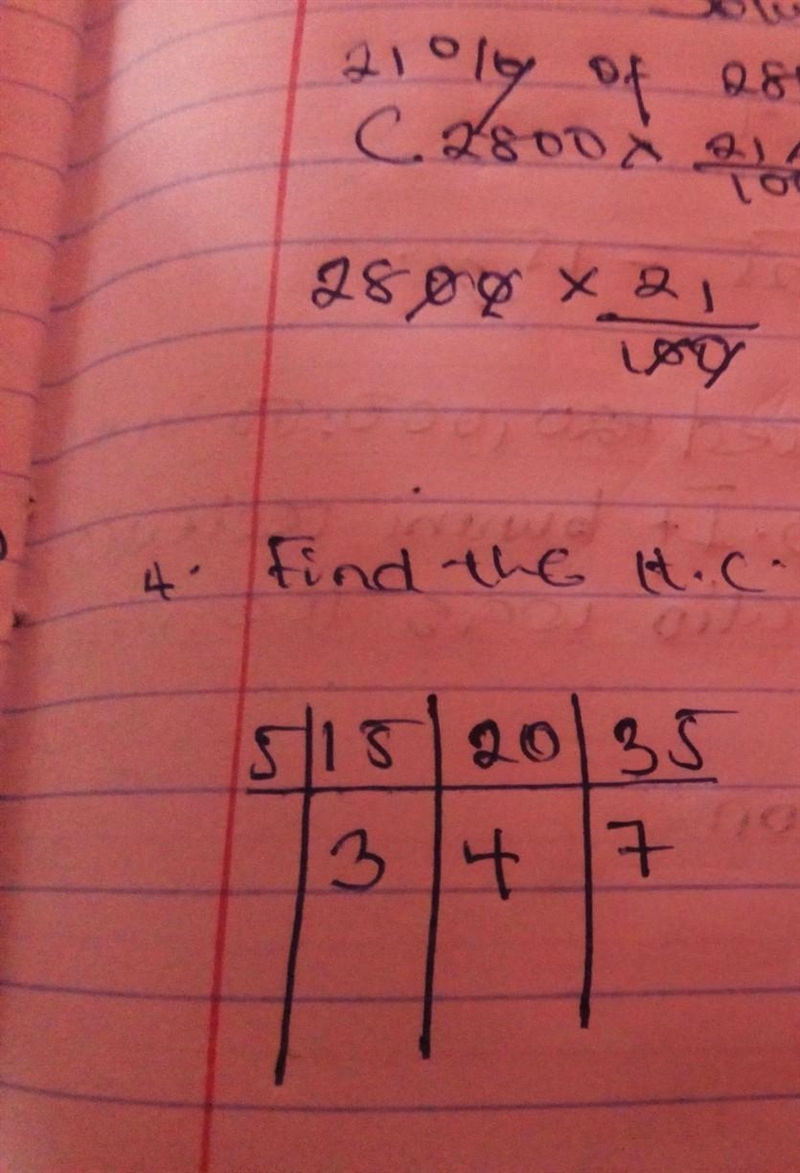 21% of 28
C. 2800 x 21/10
2800 x 21/100
4. Find the H.C.
5 | 15 | 20 | 35
3 | 4 | 7